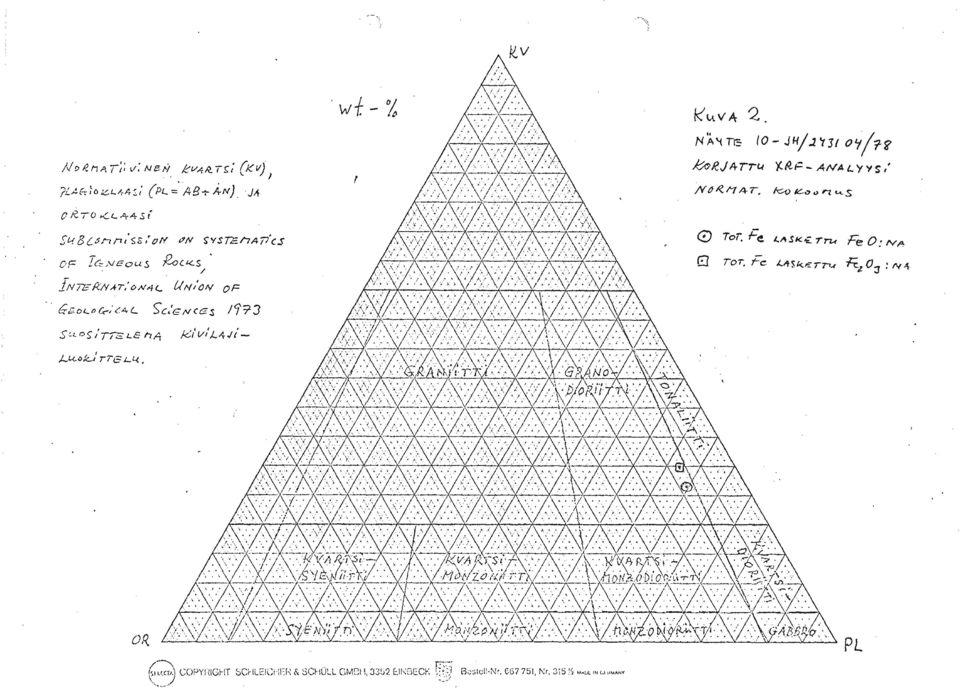 KV
wt.-%
KUVA 2.
NÄYTE 10-JH/2431 04/78
KORJATTU XRF-ANALYYSI
NORMAT. KOKOOMUS
TOT. Fe LASKETTU FeO:NA
TOT. Fe LASKETTU Fe₂O₃:NA
NORMATIIVINEN KVARTSI (KV),
PLAGIOKLAASI (PL = AB+AN) JA
ORTOKLAASI
SUBCOMMISSION ON SYSTEMATICS
OF IGNEOUS ROCKS,
INTERNATIONAL UNION OF
GEOLOGICAL SCIENCES 1973
SUOSITTELEMA KIVILAJI-
LUOKITTELU.
GRANIITTI
GRANO-
DIORIITTI
TONALIITTI
KVARTSI-
SYENIITTI
KVARTSI-
MONZONIITTI
KVARTSI-
MONZODIORIITTI
KVARTSI-
DIORIITTI
OR
SYENIITTI
MONZONIITTI
MONZODIORIITTI
GABBRO
PL
SELECTA
COPYRIGHT SCHLEICHER & SCHÜLL GMBH, 3352 EINBECK
Bestell-Nr. 667 751, Nr. 315 ½ MADE IN GERMANY